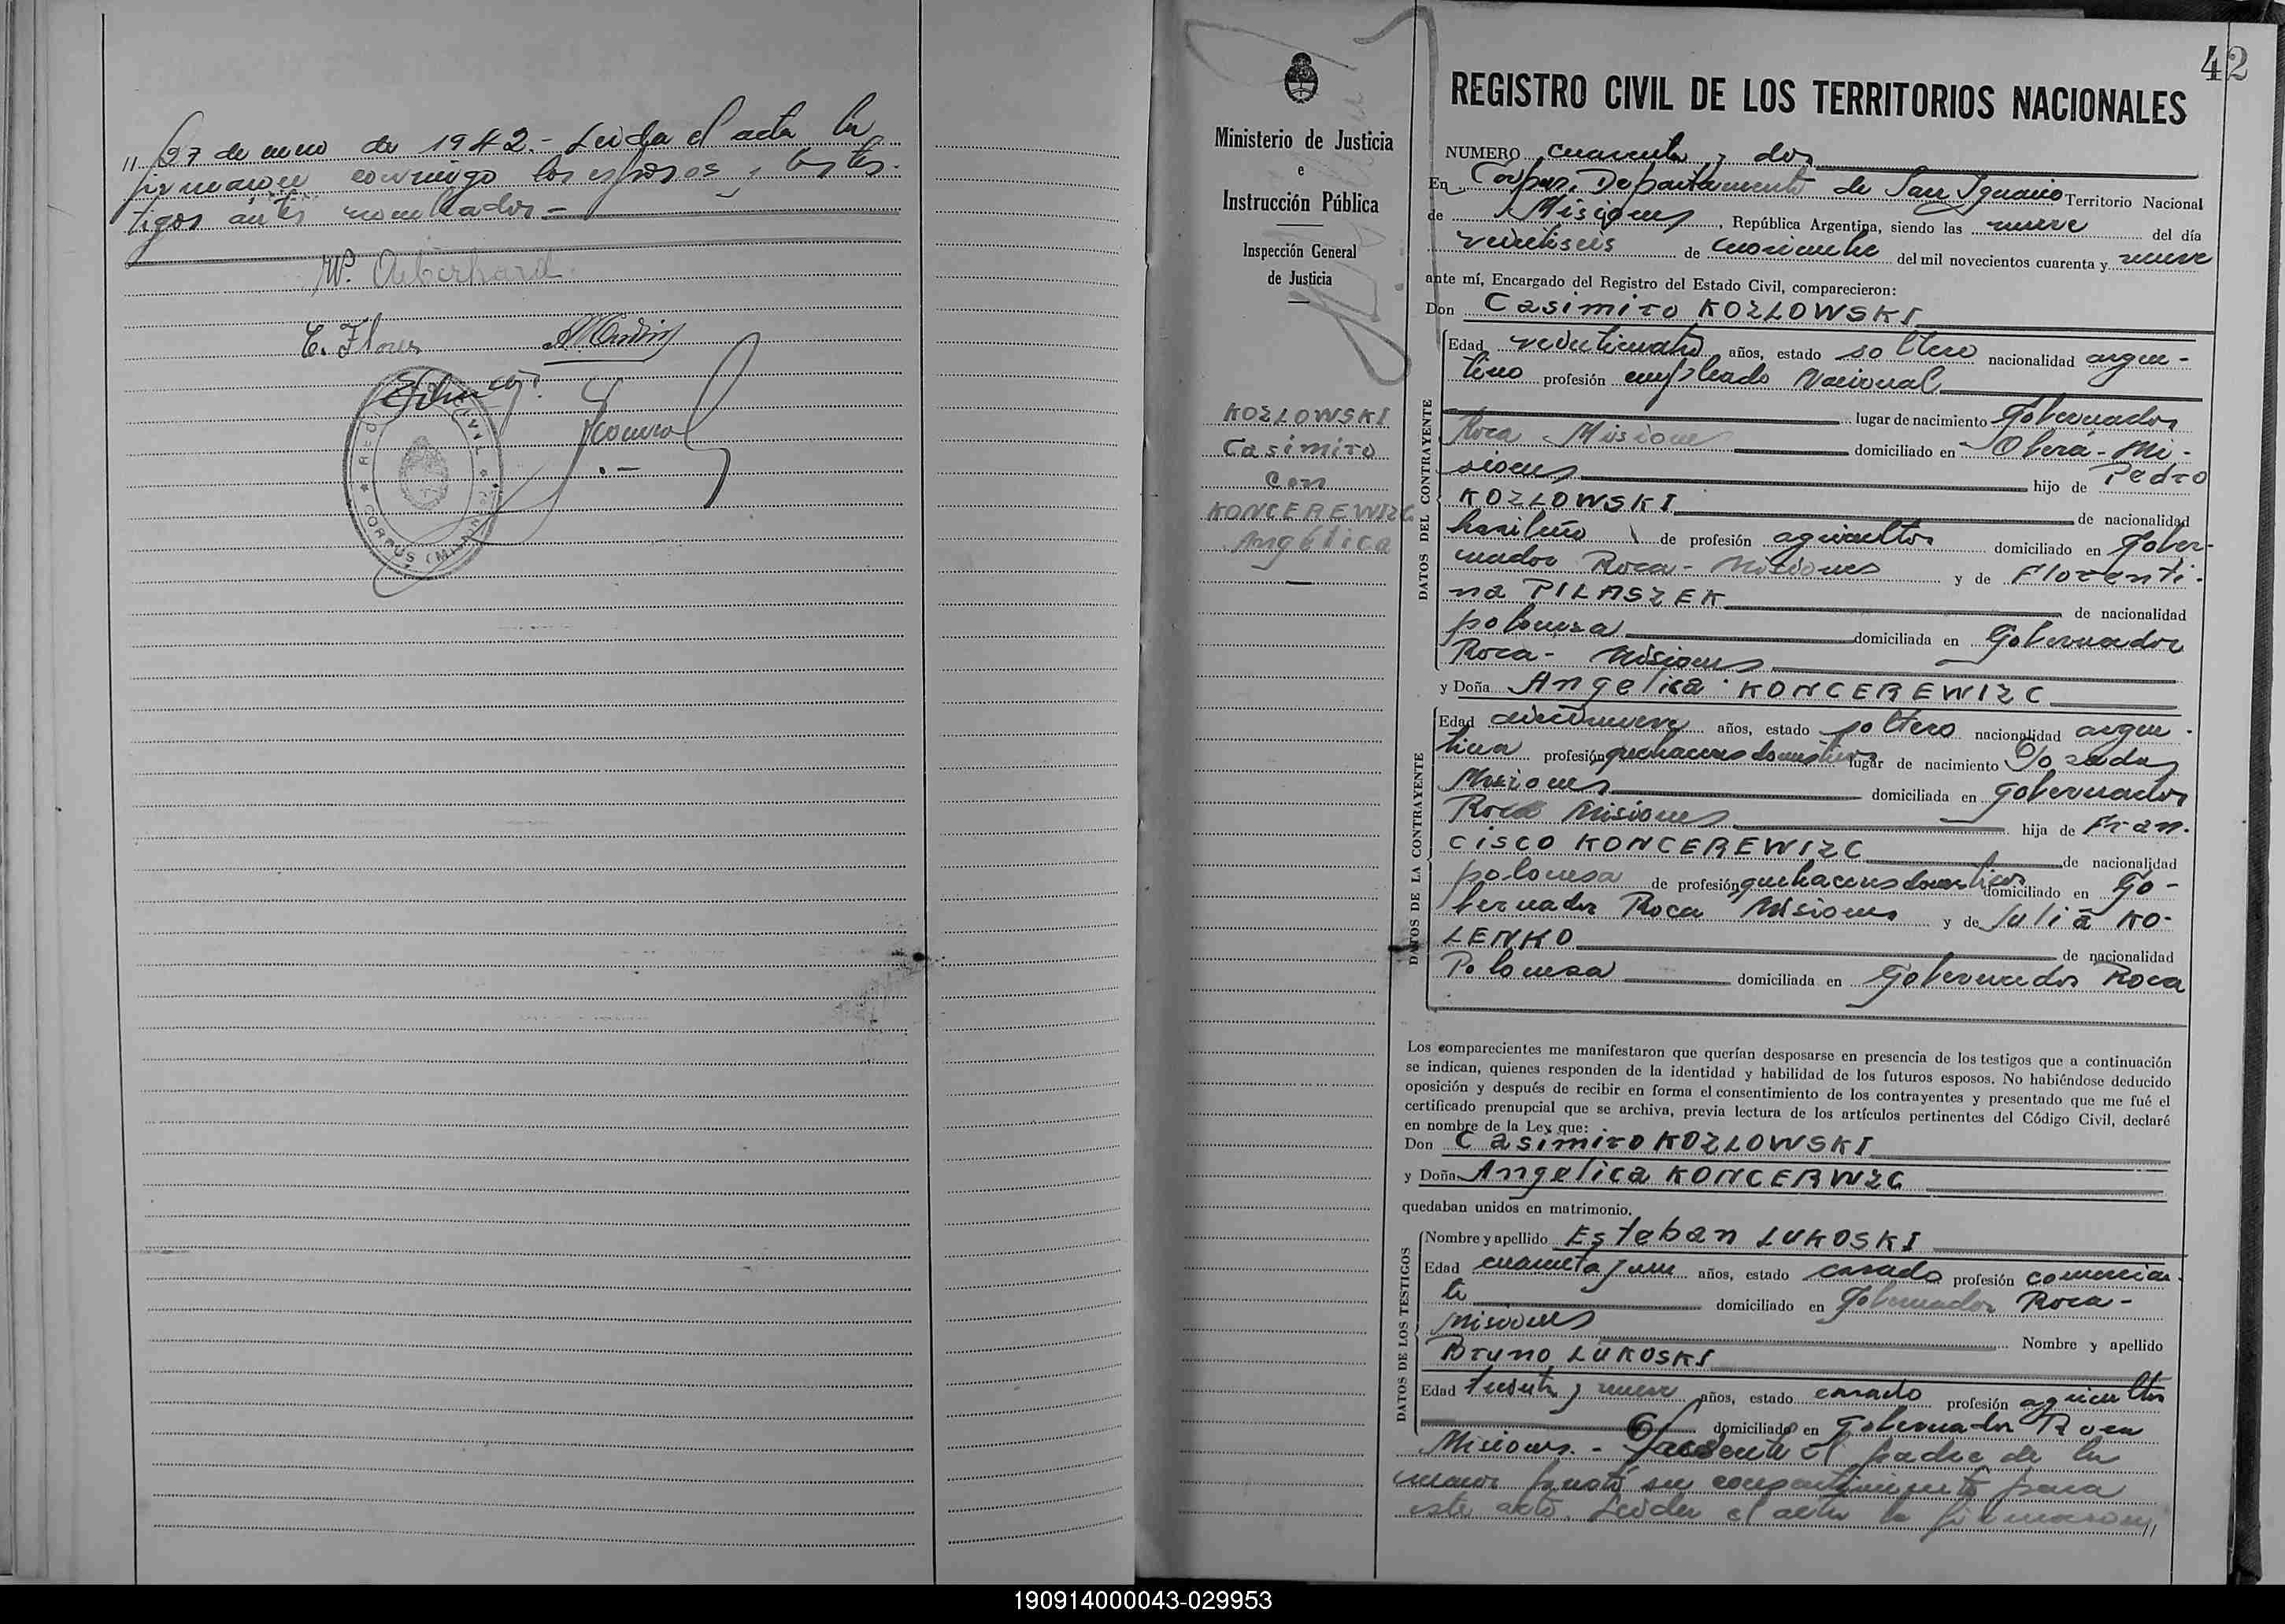 // 27 de enero de 1942.- Leida el acta la
firmaron conmigo los esposos y los tes-
tigos antes nombrados -
E. Flores
CORPUS (MISIONES)
42
Ministerio de Justicia
e
Instrucción Pública
Inspección General
de Justicia
KOZLOWSKI
Casimiro
Con
KONCEREWIZC
Angélica
REGISTRO CIVIL DE LOS TERRITORIOS NACIONALES
NUMERO cuarenta y dos
En Corpus, Departamento de San Ignacio Territorio Nacional
de Misiones, República Argentina, siendo las nueve del día
veintiseis de noviembre del mil novecientos cuarenta y nueve
ante mí, Encargado del Registro del Estado Civil, comparecieron:
Don Casimiro KOZLOWSKI
DATOS DEL CONTRAYENTE
Edad veinticuatro años, estado soltero nacionalidad argen-
tino profesión empleado Nacional
lugar de nacimiento Gobernador
Roca Misiones domiciliado en Oberá - Mi-
siones hijo de Pedro
KOZLOWSKI de nacionalidad
brasileño de profesión agricultor domiciliado en Gober-
nador Roca - Misiones y de Florenti-
na PILASZEK de nacionalidad
polonesa domiciliada en Gobernador
Roca - Misiones
y Doña Angelica KONCEREWIZC
DATOS DE LA CONTRAYENTE
Edad diecinueve años, estado soltero nacionalidad argen-
tina profesión quehaceres domesticos lugar de nacimiento Posadas
Misiones domiciliada en Gobernador
Roca Misiones hija de Fran-
cisco KONCEREWIZC de nacionalidad
polonesa de profesión quehaceres domesticos domiciliado en Go-
bernador Roca Misiones y de Julia KO-
LENKO de nacionalidad
Polonesa domiciliada en Gobernador Roca
Los comparecientes me manifestaron que querían desposarse en presencia de los testigos que a continuación
se indican, quienes responden de la identidad y habilidad de los futuros esposos. No habiéndose deducido
oposición y después de recibir en forma el consentimiento de los contrayentes y presentado que me fué el
certificado prenupcial que se archiva, previa lectura de los artículos pertinentes del Código Civil, declaré
en nombre de la Ley que:
Don Casimiro KOZLOWSKI
y Doña Angelica KONCERWZC
quedaban unidos en matrimonio.
DATOS DE LOS TESTIGOS
Nombre y apellido Esteban LUKOSKI
Edad cuarenta y un años, estado casado profesión comercian-
te domiciliado en Gobernador Roca -
Misiones Nombre y apellido
Bruno LUKOSKI
Edad treinta y nueve años, estado casado profesión agricultor
domiciliado en Gobernador Roca
Misiones. - Presente el padre de la
menor prestó su consentimiento para
este acto. Leida el acta la firmaron //
190914000043-029953